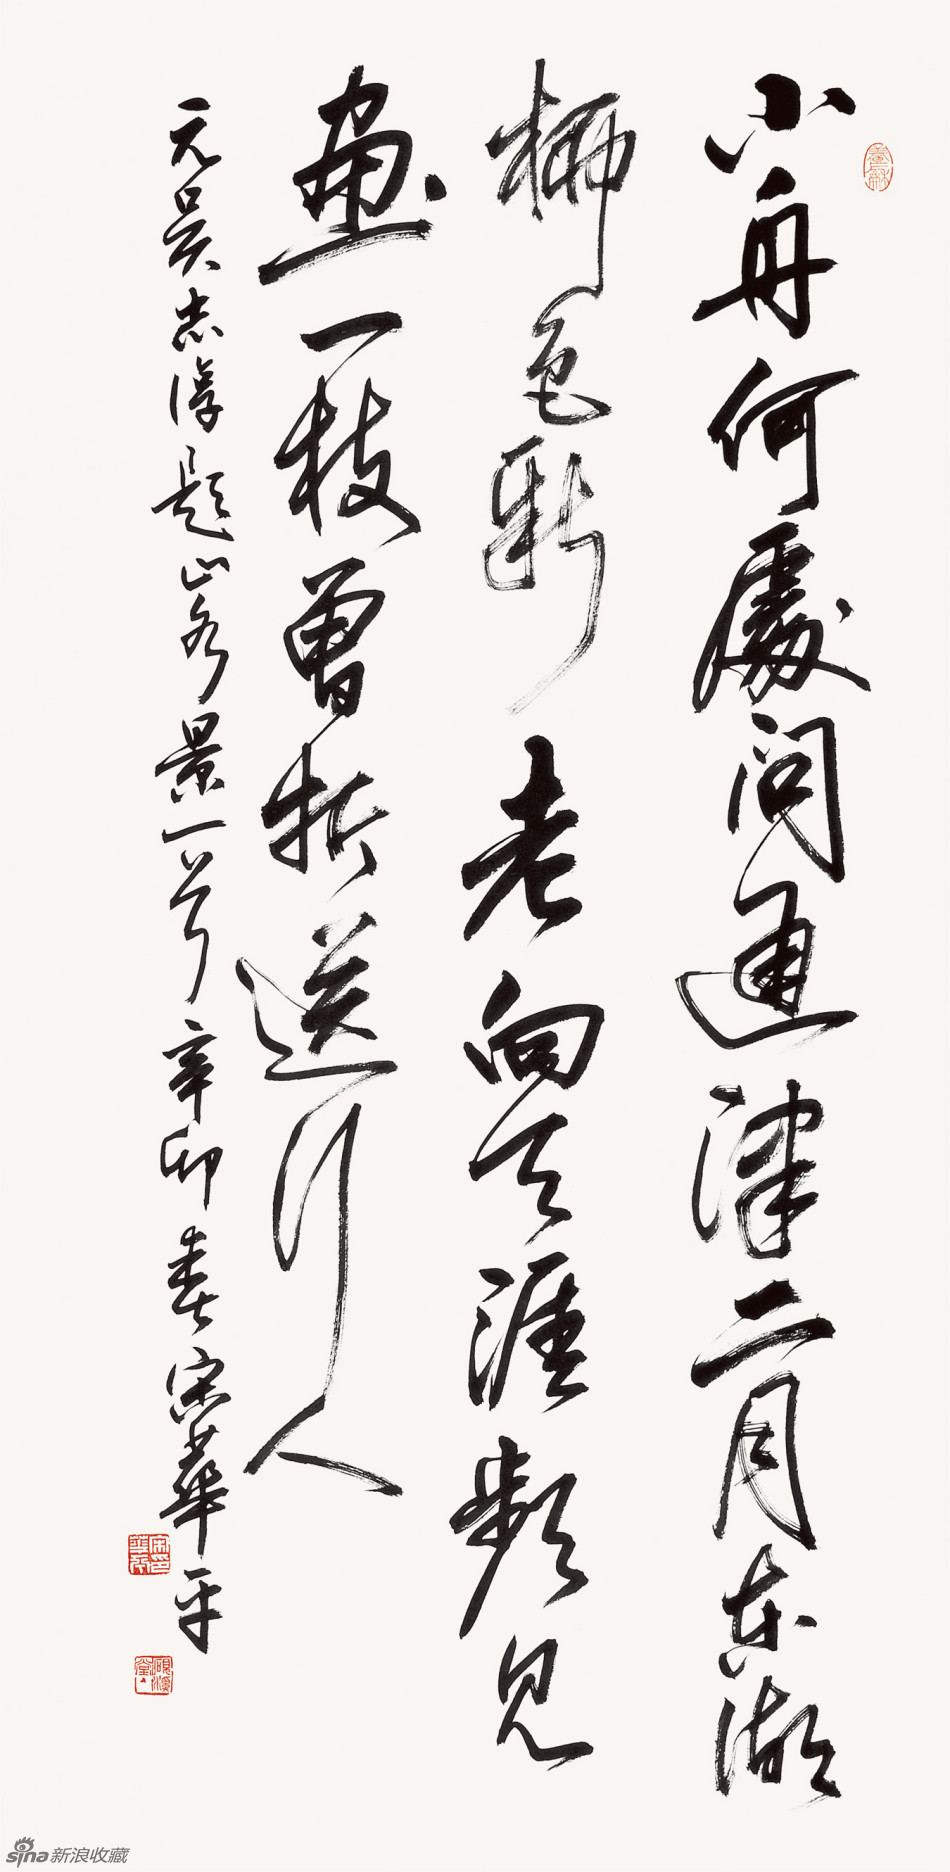 小舟何處問通津二月東湖
柳色新老向天涯頻見
畫一枝曾折送行人
元吴志淳題山水景一首辛卯春宋華平
sina新浪收藏